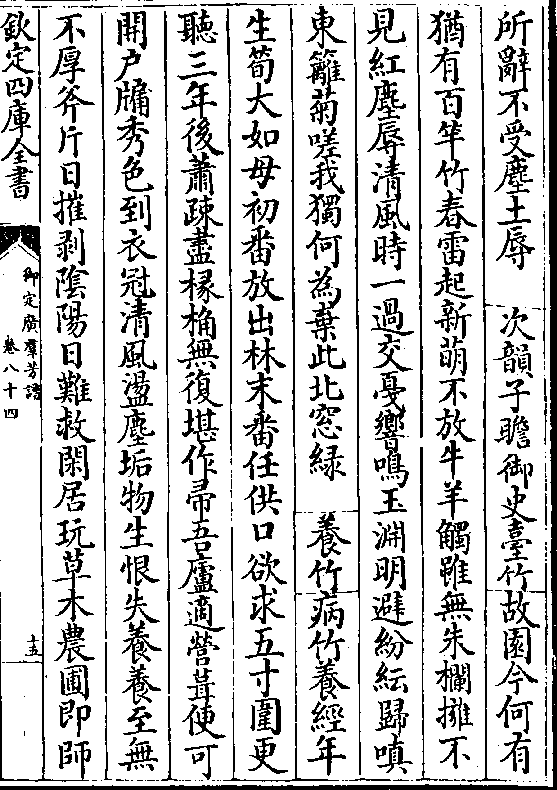 所辭不受塵土辱　次韻子瞻御史臺竹故園今何有
猶有百竿竹春雷起新萌不放牛羊觸雖無朱欄擁不
見紅塵辱清風時一過交戞響鳴玉淵明避紛紜歸嗔
東籬菊嗟我獨何為棄此北窓緑　養竹病竹養經年
生筍大如母初番放出林末番任供口欲求五寸圍更
聽三年後蕭疎盡椽桷無復堪作帚吾廬適營葺便可
開户牖秀色到衣冠清風盪塵垢物生恨失養養至無
不厚斧斤日摧剥陰陽日難救閑居玩草木農圃即師
欽定四庫全書
御定廣羣芳譜
卷八十四
十五